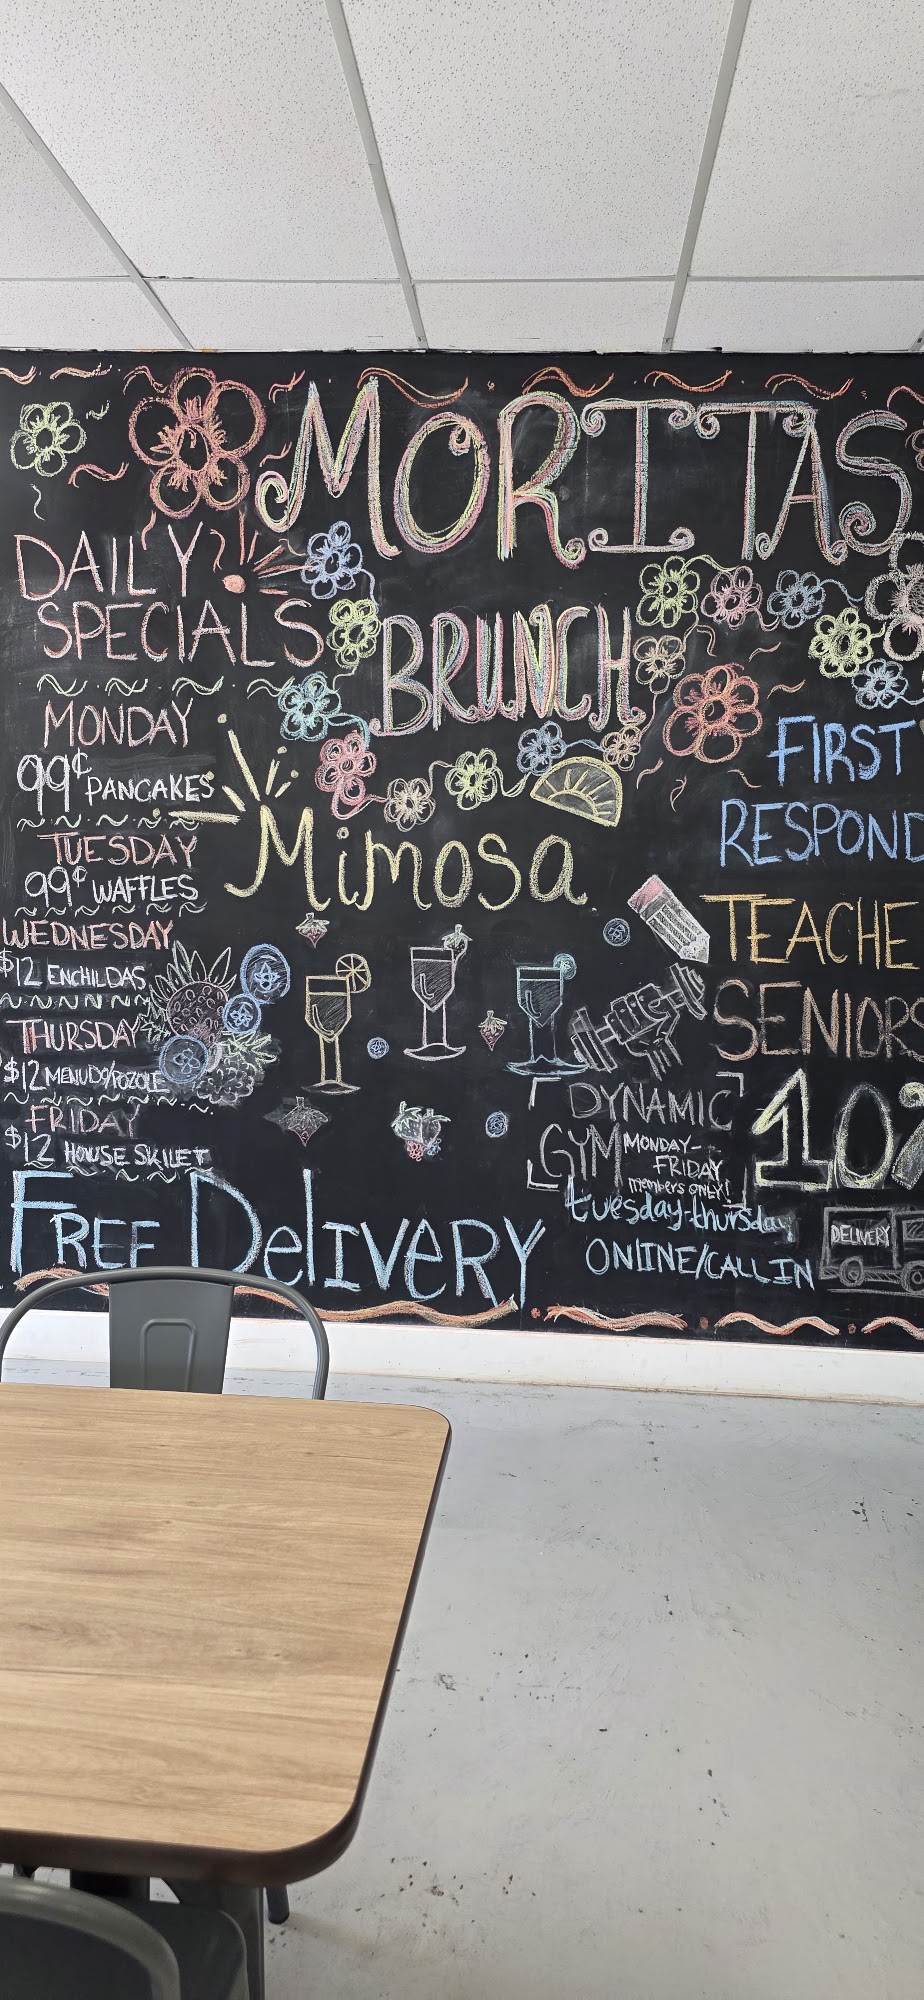 MORITAS
BRUNCH
DAILY
SPECIALS
MONDAY
99¢ PANCAKES
TUESDAY
99¢ WAFFLES
WEDNESDAY
$12 ENCHILDAS
THURSDAY
$12 MENUDO/POZOLE
FRIDAY
$12 HOUSE SKILET
Mimosa
FIRST
RESPOND
TEACHE
SENIORS
10%
DYNAMIC
GYM MONDAY-
FRIDAY
members ONLY!
FREE DelIVERY
tuesday-thursday
ONlINE/CALL IN
DELIVERY